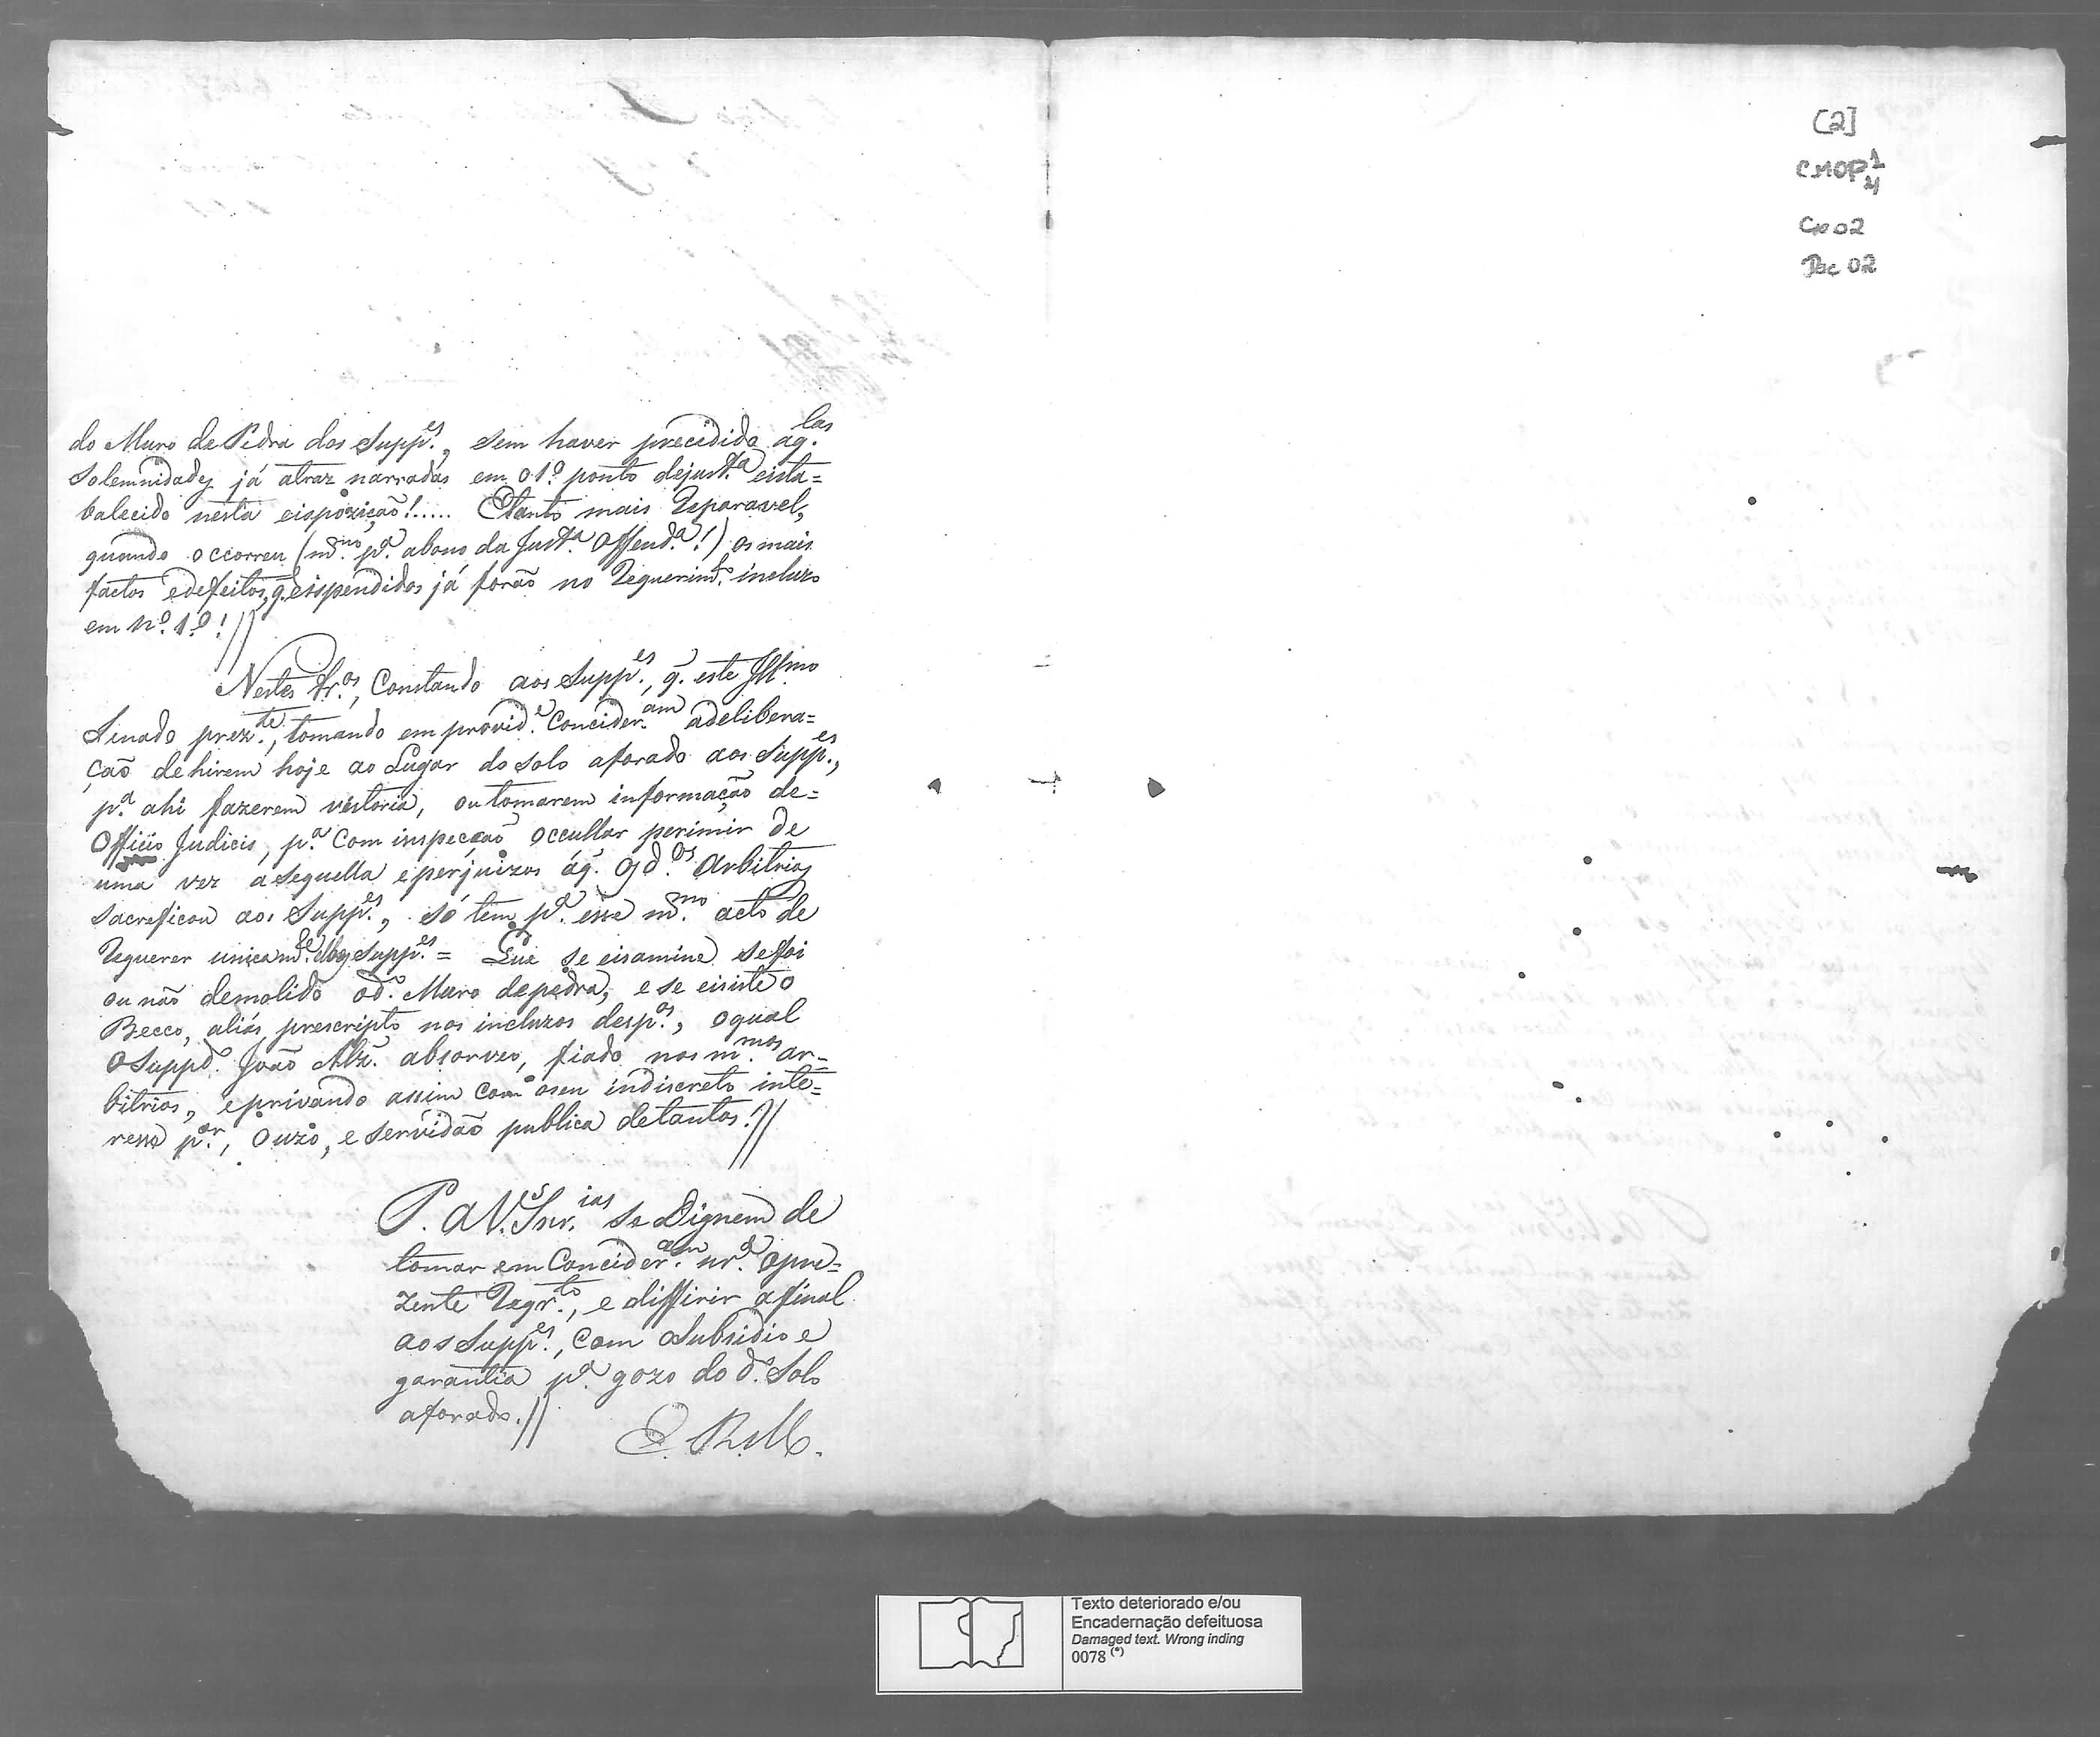 do Muro de Pedra dos Supp.es, sem haver precedido aq.las
Solemnidades já atraz narradas em o 1.º ponto de just.ª eista=
balecido nesta eispozição!..... E tanto mais Reparavel,
quando occorreu (m.mo p.ª abono da Just.ª Offend.ª!) os mais
factos e defeitos, q. eispendidos já forão no Requerim.to incluzo
em N.º 1.º!//
Nestes tr.os, Constando aos Supp.es, q. este Ill.mo
Senado prez.te, tomando em provid.e Concider.am a delibera=
ção de hirem hoje ao Lugar do solo aforado aos Supp.es,
p.ª ahi fazerem vistoria, ou tomarem informação de=
Officio Judicis, p.ª Com inspecção occullar perimir de
uma vez a sequella e perjuizos áq. os d.os Arbitrios
sacreficou aos Supp.es, só tem p.ª esse m.mo acto de
Requerer unicam.te os Supp.es = Que se eisamine se foi
ou não demolido o d.o Muro de pedra, e se eisiste o
Becco, aliás prescripto nos incluzos desp.os, o qual
o Supp.do João Alz. absorveo, fiado nos m.mos ar=
bitrios, e privando assim com o seu indiscreto inte=
resse p.ar, o uzo, e servidão publica de tantos.//
P. a V.S Snr.ias se Dignem de
tomar em Concider.am nr.ª o pre=
zente Reqr.to, e differir afinal
aos Supp.es, Com o Subsidio e
garantia p.ª gozo do d.o Solo
aforado.//
E. R. M.
[2]
CMOP 1/4
Cx 02
Doc 02
Texto deteriorado e/ou
Encadernação defeituosa
Damaged text. Wrong inding
0078 (*)